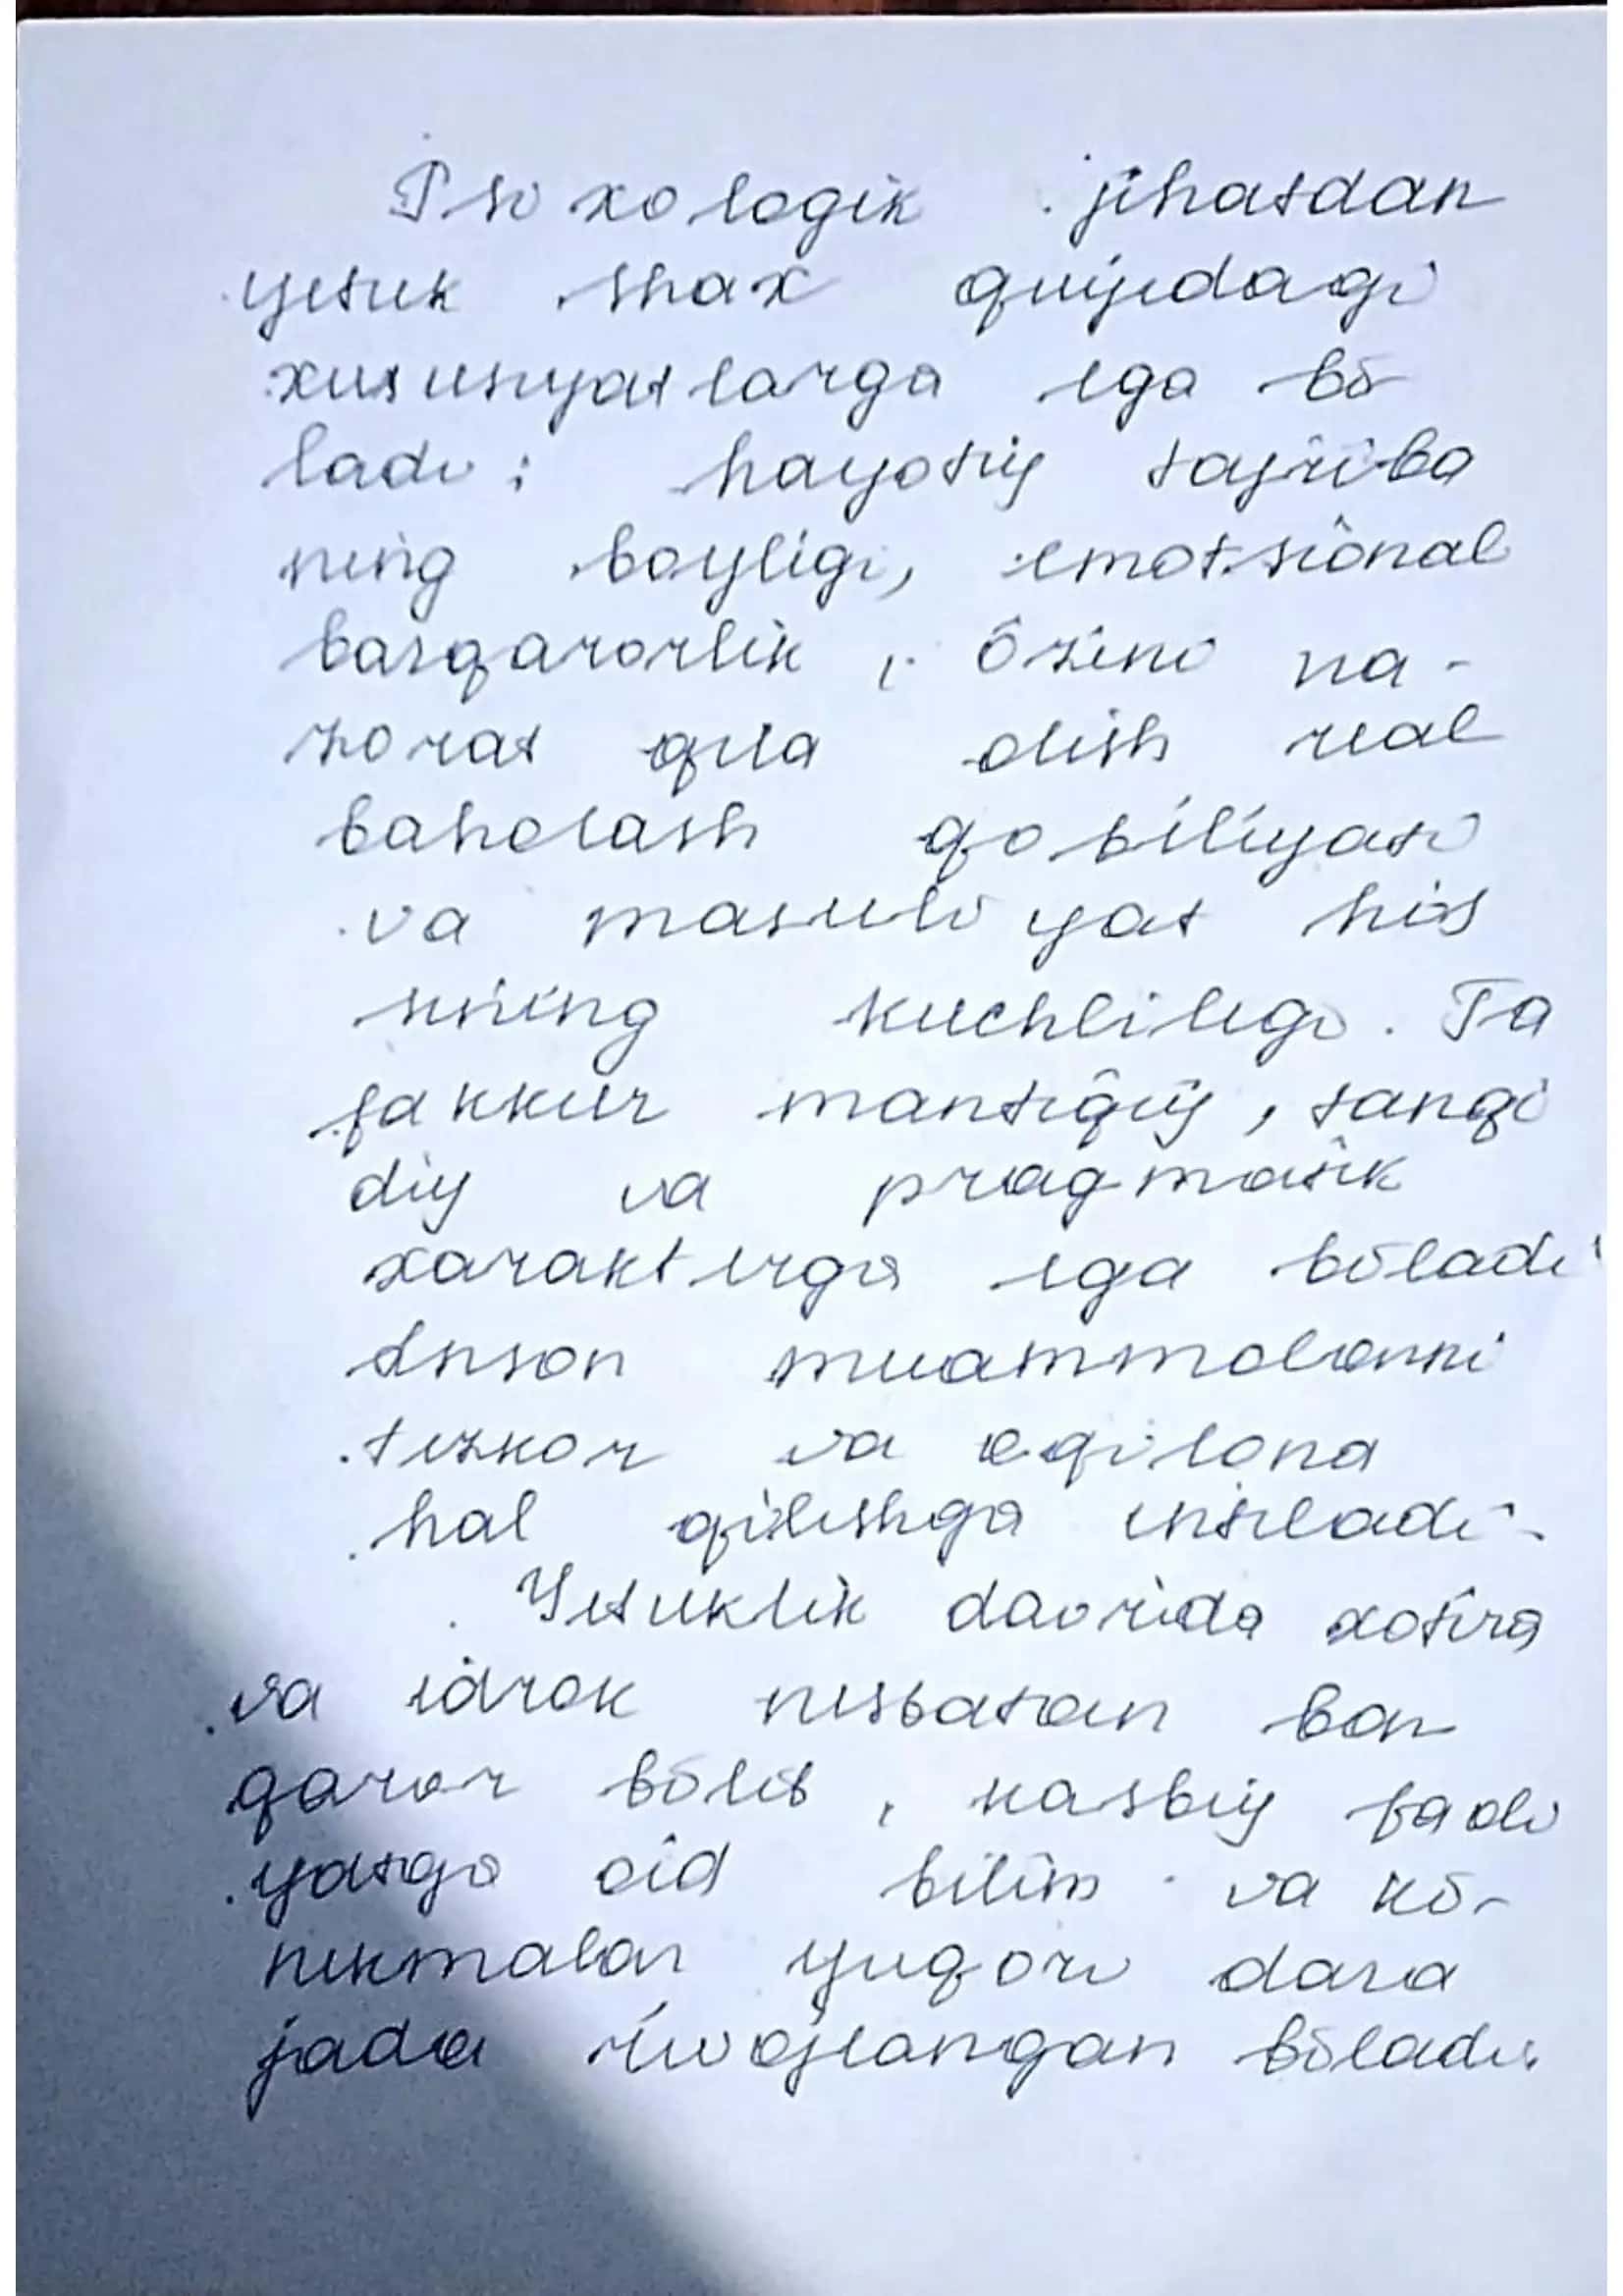 Psixologik jihatdan
yetuk shax quyidagi
xususiyatlarga ega bō
ladi: hayotiy tajriba
ning boyligi, emotsional
barqarorlik, ōzini na-
zorat qila olish real
baholash qobiliyati
va masuliyat his
sining kuchliligi. Ta
fakkur mantiqiy, tanqi
diy va pragmatik
xarakterga ega bōladi
Inson muammolarni
tezkor va oqilona
hal qilishga intiladi.
Yetuklik davrida xotira
va idrok nisbatan bar
qaror bōlib, kasbiy faoli
yatga oid bilim va kō-
nikmalar yuqori dara
jada rivojlangan bōladi.